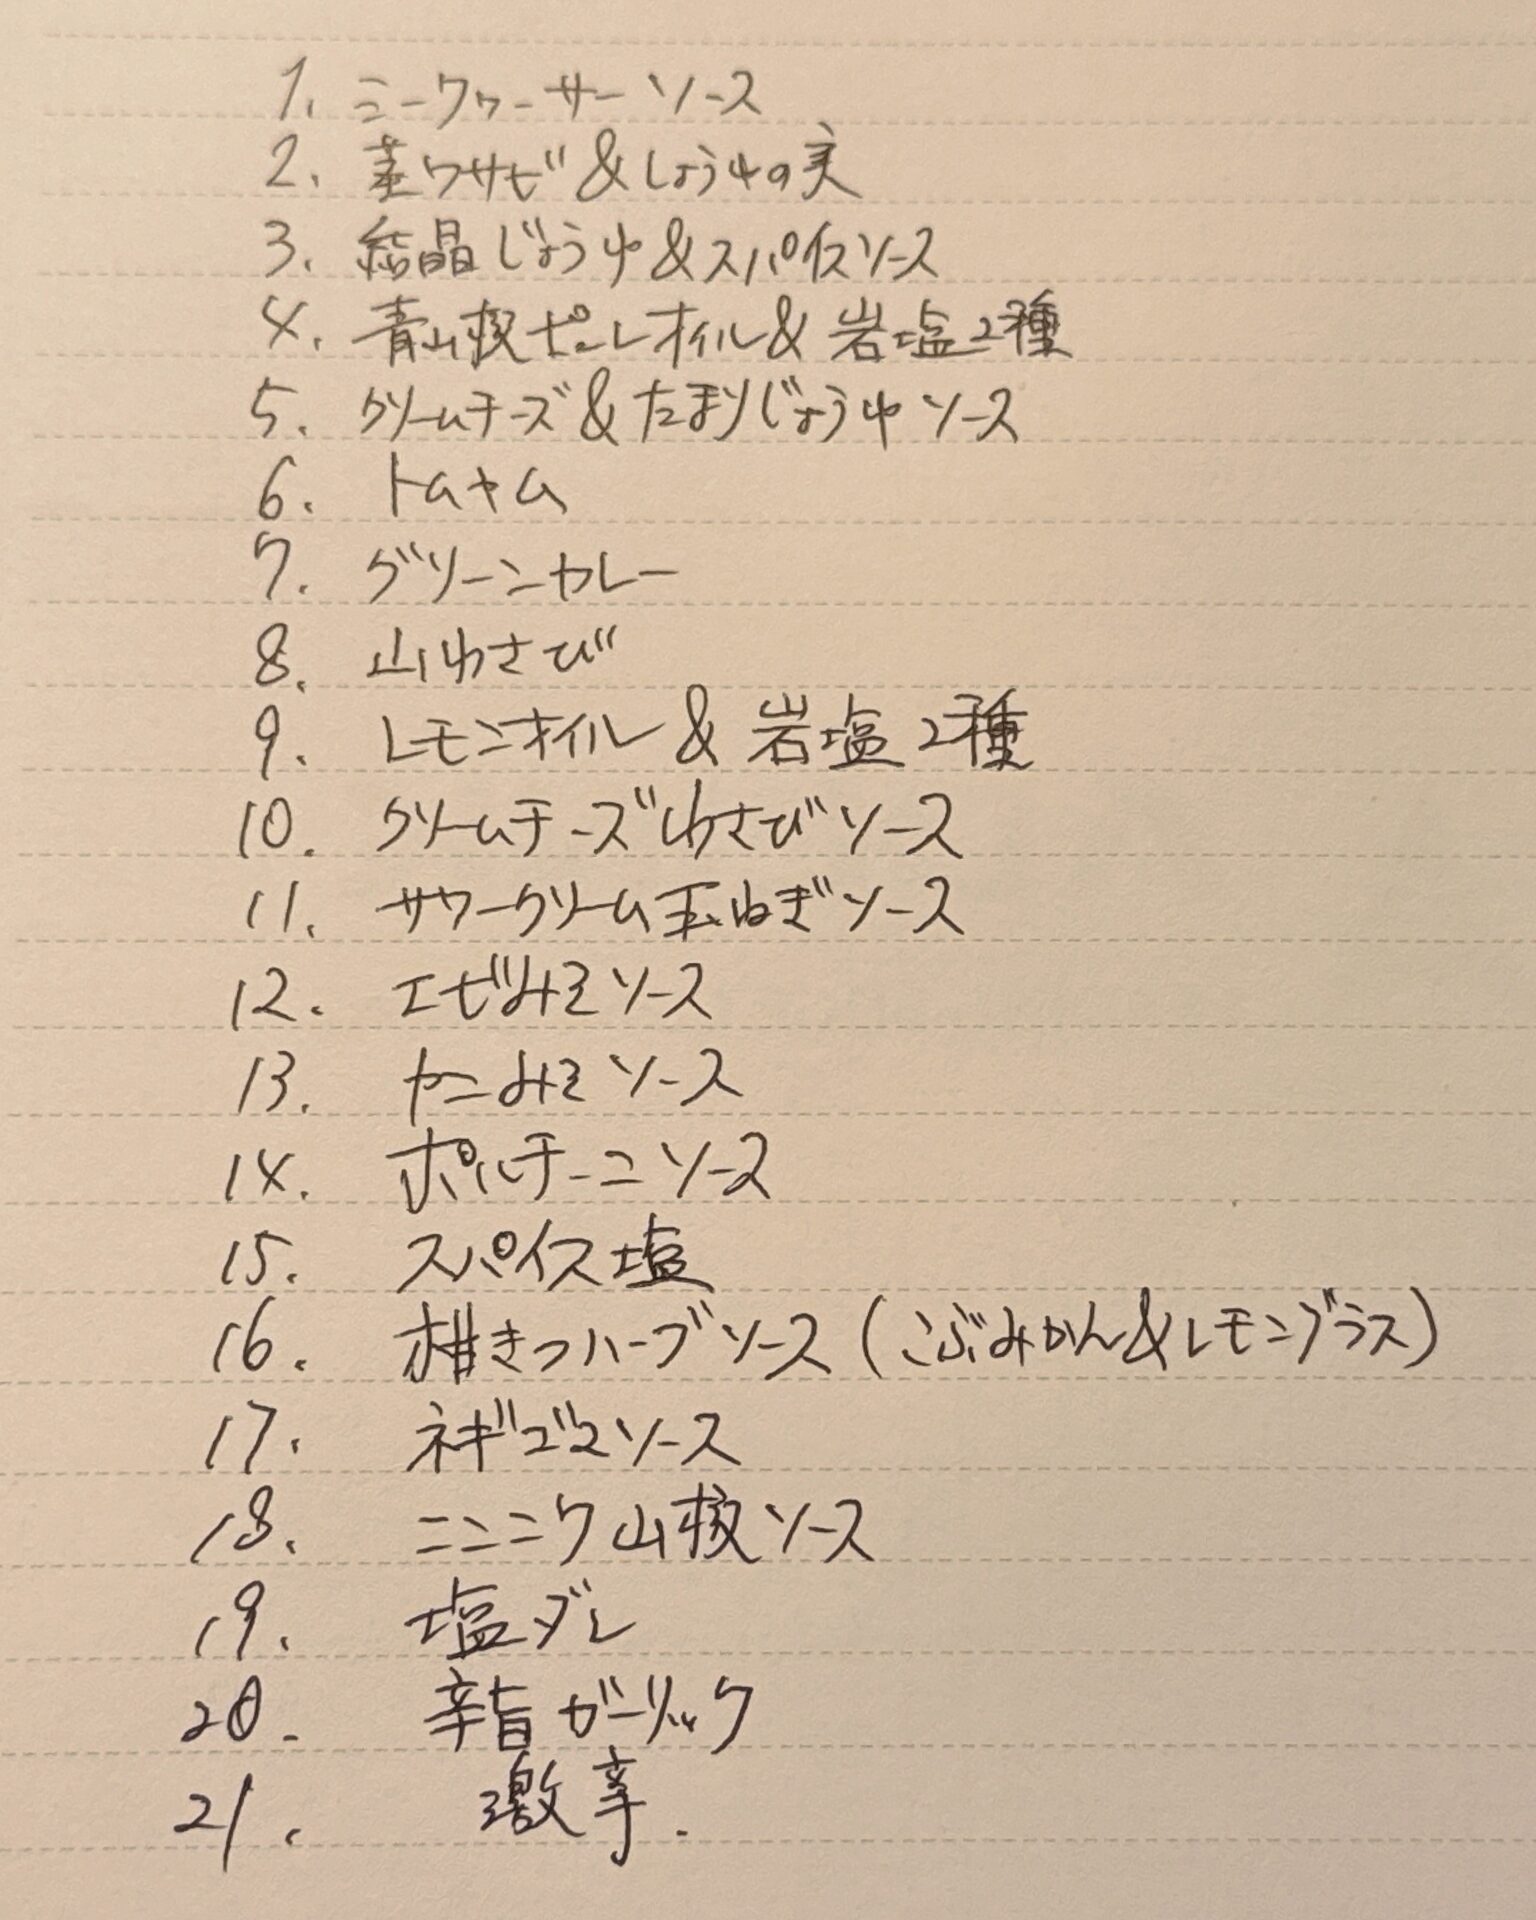 1. ニークヮーサーソース
2. 茎ワサビ&しょうゆの実
3. 結晶じょうゆ&スパイスソース
4. 青山椒ピュレオイル&岩塩2種
5. クリームチーズ&たまりじょうゆソース
6. トムヤム
7. グリーンカレー
8. 山わさび
9. レモンオイル&岩塩2種
10. クリームチーズわさびソース
11. サワークリーム玉ねぎソース
12. エビみそソース
13. カニみそソース
14. ポルチーニソース
15. スパイス塩
16. 椎きのハーブソース(こぶみかん&レモングラス)
17. ネギゴマソース
18. ニンニク山椒ソース
19. 塩ダレ
20. 辛旨ガーリック
21. 激辛.